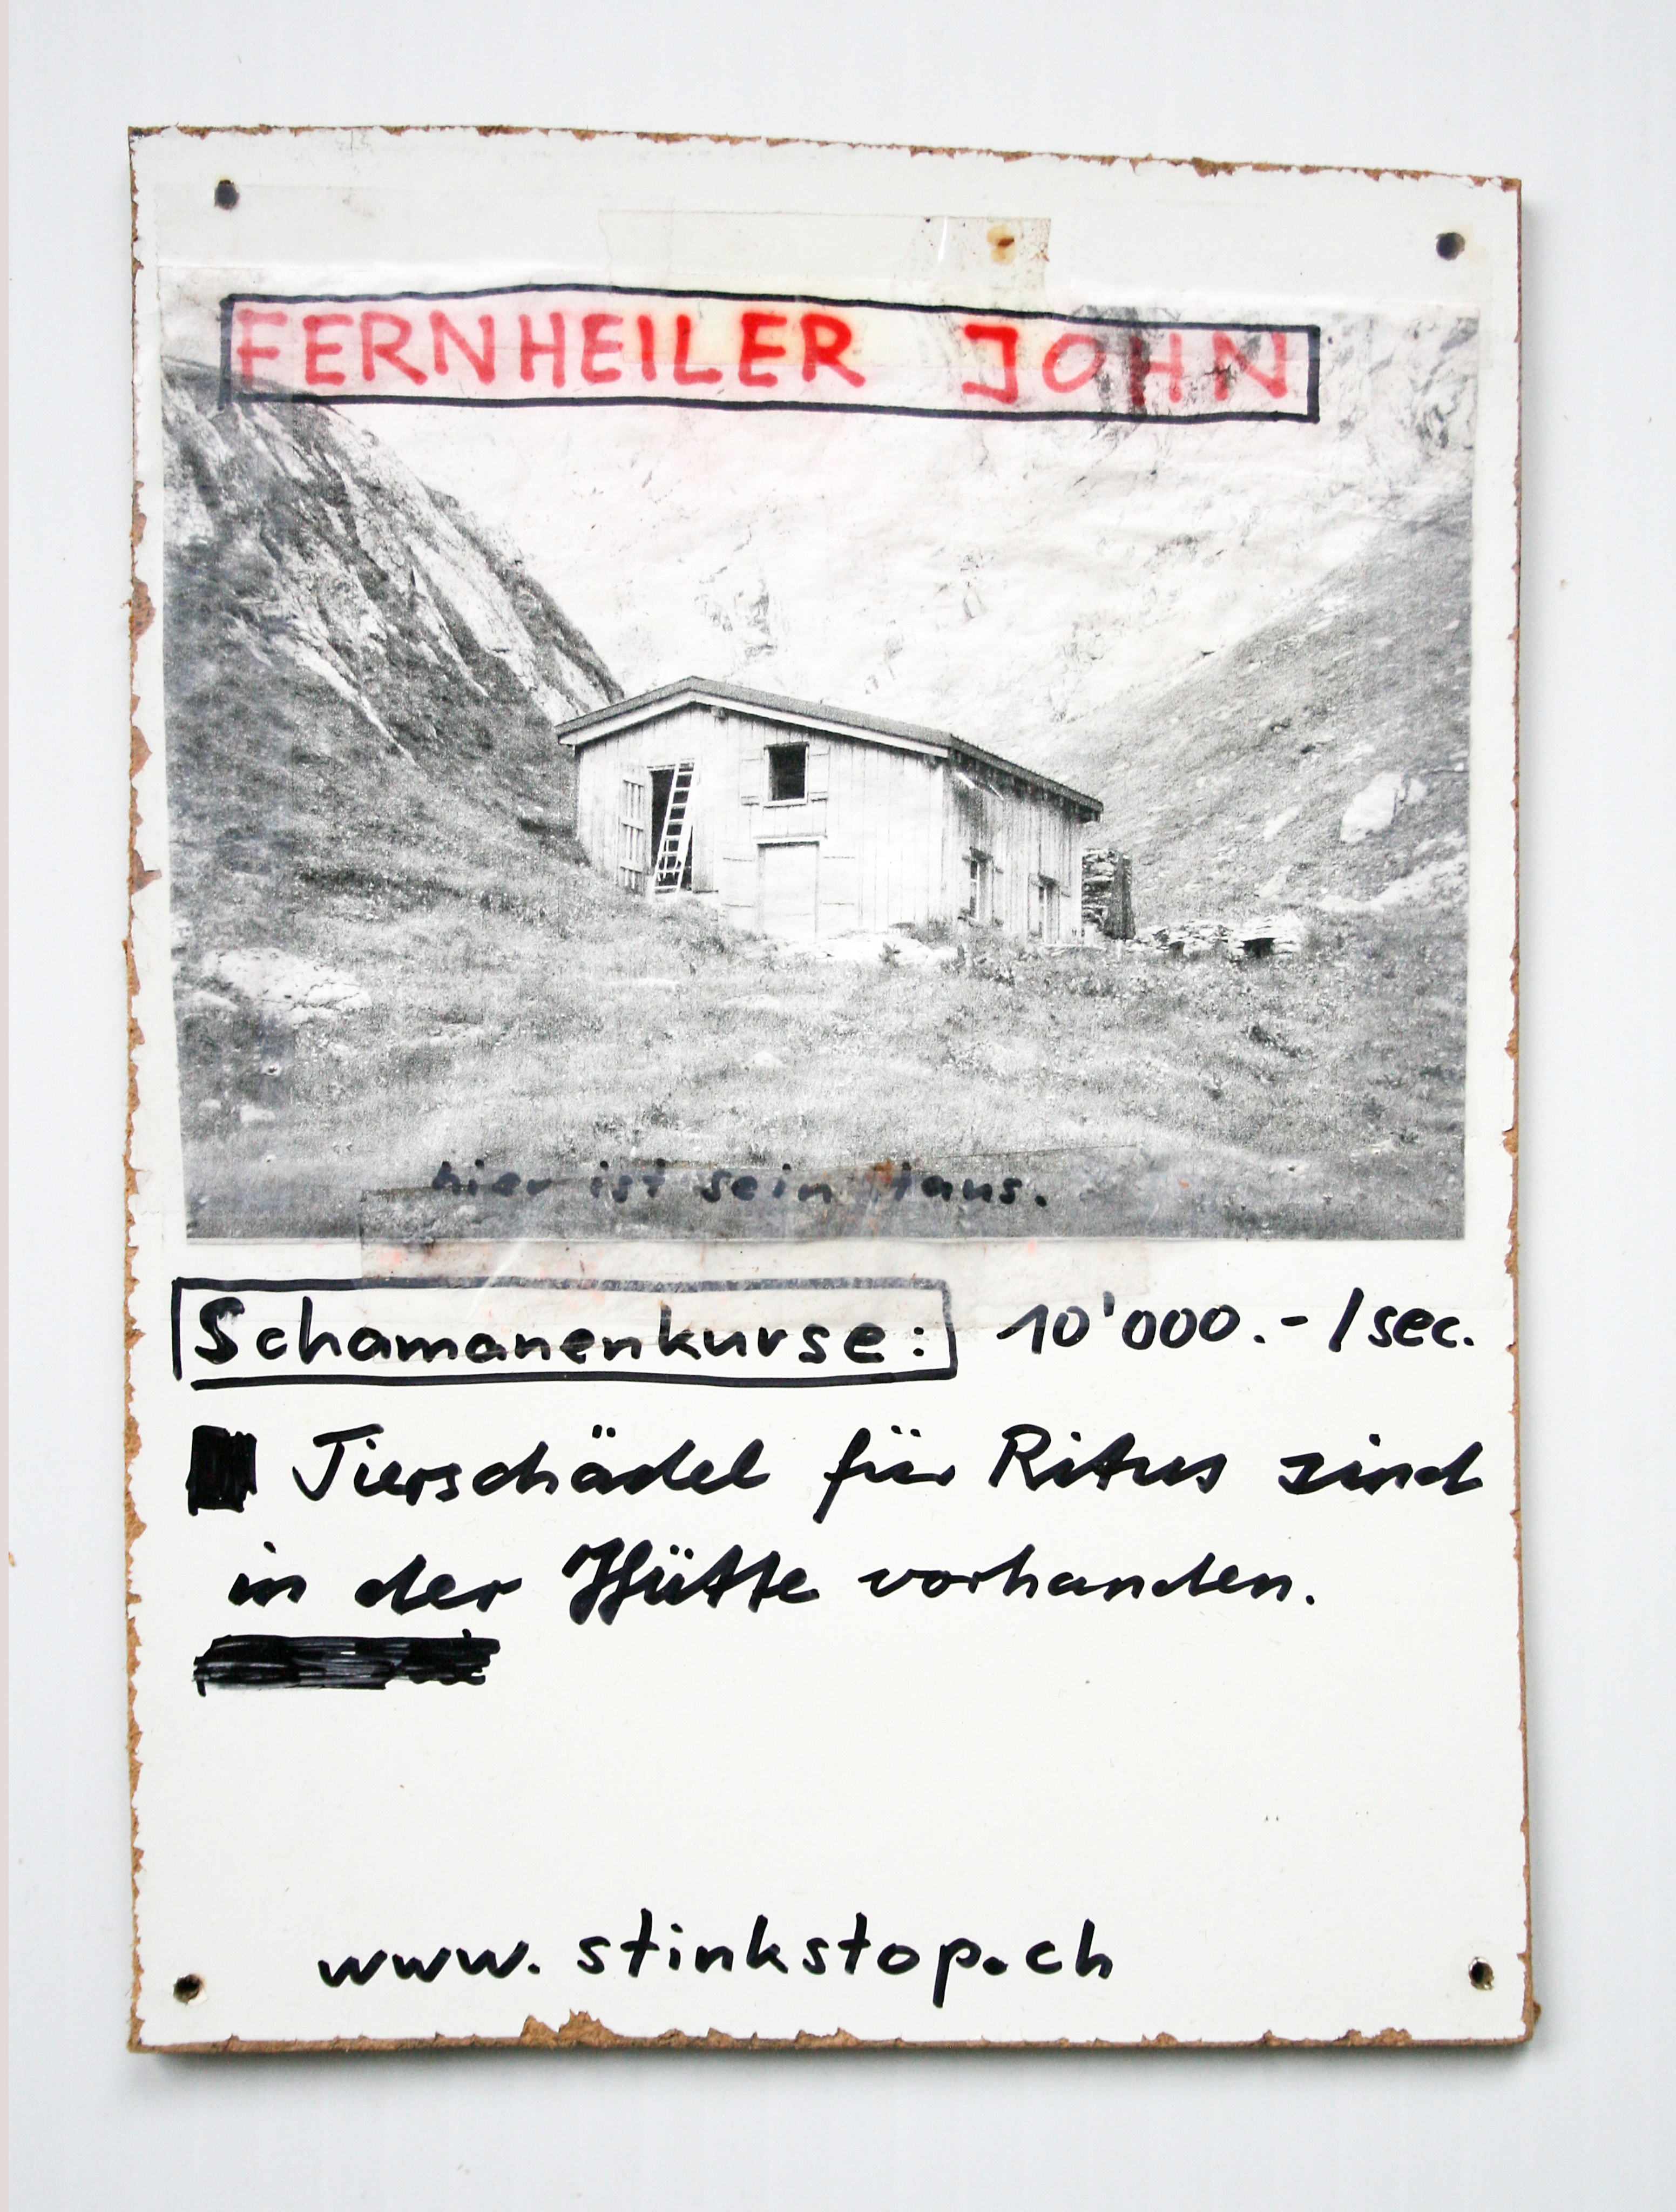 FERNHEILER JOHN
hier ist sein Haus.
Schamanenkurse: 10'000.-/sec.
Tierschädel für Ritus sind
in der Hütte vorhanden.
www.stinkstop.ch